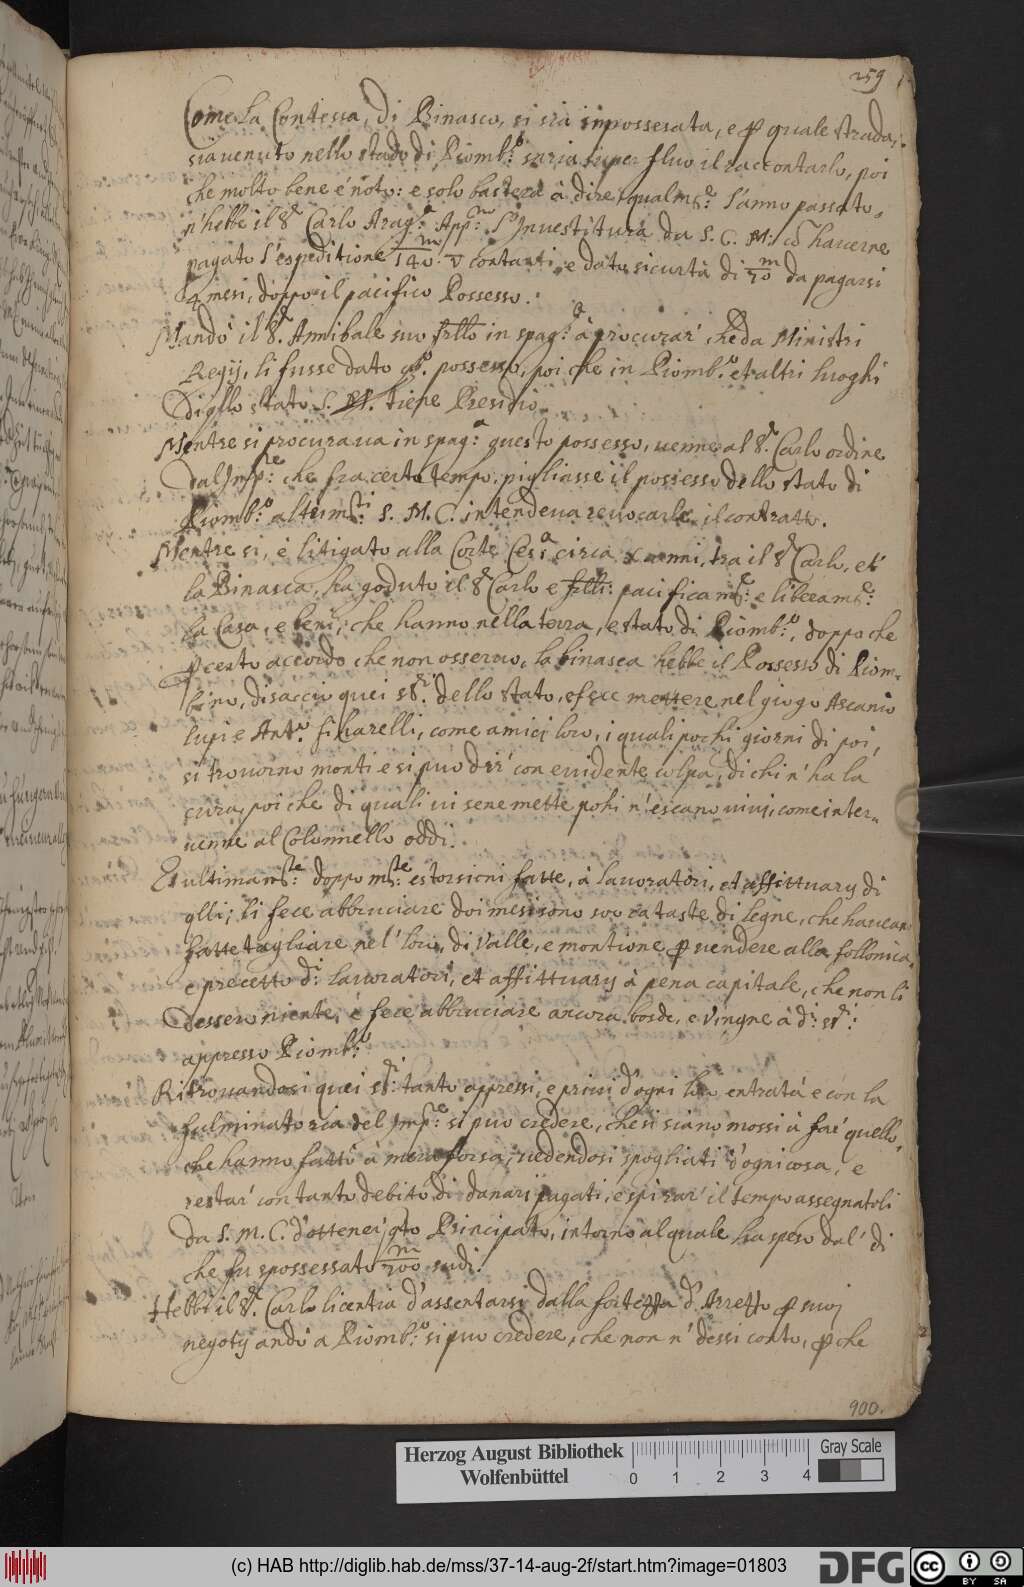 259
Come la Contessa, di Binasco, si sia impossesata, e p quale strada,
sia venuto nello stado di Piomb.o saria super fluo il raccontarlo, poi
che molto bene é noto: e solo bastera à dire, qualmte: l'anno passato
n'hebbe il Sr. Carlo Arag.a App.no l'Investitura da S. C. M.tà cõ haverne
pagato l'espeditione 140 m v contanti, e dato sicurtà di 70 m da pagarsi
4 mesi, doppo il pacifico Possesso.
Mandò il Sr. Annibale suo frllo in spag.a à procurar' che da Ministri
Regij, li fusse dato qto. possesso, poi che in Piomb.o et altri luoghi
di qllo stato S. M. tiene Presidio.
Mentre si procuraua in spag.a questo possesso, uenne al Sr. Carlo ordine
dal Imp.re che fra certo tempo, pigliasse il possesso dello stato di
Piomb.o altrim.ti S. M. C. intendeua reuocarle il contratto.
Mentre si, è litigato alla Corte Ces.a circa x anni, tra il Sr. Carlo, et
la Binasca, ha goduto il Sr Carlo e frlli: pacificam.te e liberam.te:
la Casa, e beni, che hanno nella terra, e stato di Piomb.o, doppo che
p certo accordo che non osseruo, la binasca hebbe il Possesso di Piom-
bino, discacciò quei Sri. dello stato, e fece mettere nel giogo Ascanio
lupi e Ant.o ficharelli, come amici loro, i quali pochi giorni di poi,
si trouorno monti e si può dir' con euidente colpa, di chi n'ha la
cura, poi che di quali ui sene mette pohi n'escano uiui, come inter-
uenne al Colonnello oddi.
Et ultimam.te: doppo m.te: estorsioni fatte, à lauoratori, et affittuary di
qlli; li fece abbruciare doi mesi sono 200 cataste di legne, che haueano
fatte tagliare nel' loro, di Valle, e montione p uendere alla follonica
e precetto di lauoratori, et affittuary à pena capitale, che non li
dessero niente, é fece abbruciare ancora boscho, e Vingne à di Sri:
appresso Piomb.o
Ritrouandosi quei Sri: tanto oppressi, e priui d'ogni loro entrata e con la
fulminatoria del Imp.re: si può credere, che si siano mossi à far' quello,
che hanno fatto à mera forza, uedendosi spogliati d'ogni cosa, e
restar' con tanto debito di danari pagati, e spirar' il tempo assegnatoli
da S. M. C. d'ottener' qto Principato, intorno al quale ha speso dal' dì
che fu spossessato 200 m scudi.
Hebbe il Sr. Carlo licentia d'assentarsi dalla fortezza d'Arezzo p suoi
negotij andò a Piomb.o si può credere, che non n' dessi conto, p che
900.
Herzog August Bibliothek
Wolfenbüttel
0 1 2 3 4
Gray Scale
(c) HAB http://diglib.hab.de/mss/37-14-aug-2f/start.htm?image=01803
DFG
cc BY SA